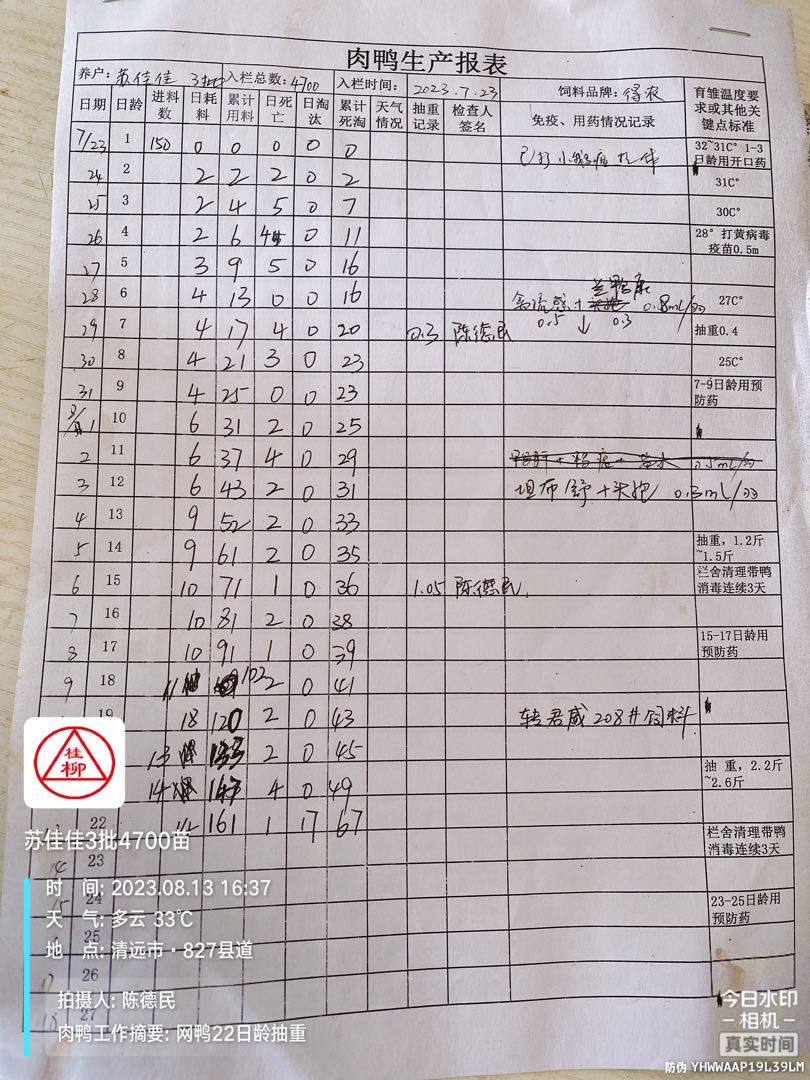 肉鸭生产报表
养户: 苏佳佳 3批 入栏总数: 4700 入栏时间: 2023.7.23 饲料品牌: 得农
日期 日龄 进料数 日耗料 累计用料 日死亡 日淘汰 累计死淘 天气情况 抽重记录 检查人签名 免疫、用药情况记录 育雏温度要求或其他关键点标准
7/23 1 150 0 0 0 0 0 已打小鹅瘟抗体 32~31C° 1-3日龄用开口药
24 2 2 2 2 0 2 31C°
25 3 2 4 5 0 7 30C°
26 4 2 6 4 0 11 28° 打黄病毒疫苗0.5m
27 5 3 9 5 0 16
28 6 4 13 0 0 16 禽流感+ 0.8mL/羽 27C°
29 7 4 17 4 0 20 0.3 陈德民 0.5 ↓ 0.3 抽重0.4
30 8 4 21 3 0 23 25C°
31 9 4 25 0 0 23 7-9日龄用预防药
8/1 10 6 31 2 0 25
2 11 6 37 4 0 29 0.5mL/羽
3 12 6 43 2 0 31 坦布舒+头孢 0.3mL/羽
4 13 9 52 2 0 33
5 14 9 61 2 0 35 抽重，1.2斤~1.5斤
6 15 10 71 1 0 36 1.05 陈德民 栏舍清理带鸭消毒连续3天
7 16 10 81 2 0 38
8 17 10 91 1 0 39 15-17日龄用预防药
9 18 11 102 2 0 41
19 18 120 2 0 43 转君威208#饲料
13 133 2 0 45
14 147 4 0 49 抽 重，2.2斤~2.6斤
22 14 161 1 17 67
23 栏舍清理带鸭消毒连续3天
14
15 24 23-25日龄用预防药
25
17 26
18 27
桂柳
苏佳佳3批4700苗
时 间: 2023.08.13 16:37
天 气: 多云 33℃
地 点: 清远市·827县道
拍摄人: 陈德民
肉鸭工作摘要: 网鸭22日龄抽重
今日水印
-相机-
真实时间
防伪 YHWWAAP19L39LM